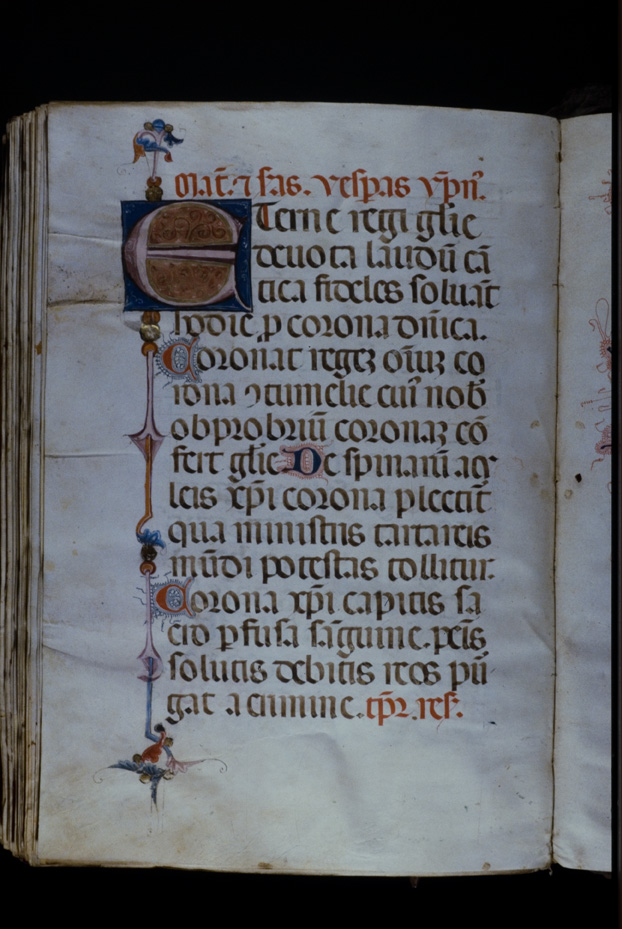 Mať. ⁊ s̃as. vespas ympñ.
Eterne regi glie
deuota laudũ cã
tica fideles soluãt
hodie ꝑ corona dñica.
Coronat regeʒ oĩuʒ co
rona ꝯtumelie cui' nob̃
obprobriũ coronaʒ cõ
fert glie De spinarũ ag
leis xp̃i corona plectit̃
qua ministris tartareis
mũdi potestas tollitur.
Corona xp̃i capitis sa
cro ꝑfusa sãguine. peis
solutis debitis reos pũ
gat a crimine. tp̃r. res.